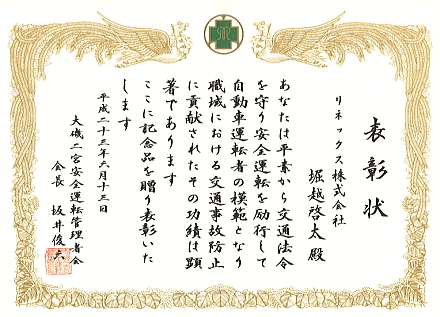 表彰状
リネックス株式会社
堀越啓太殿
あなたは平素から交通法令
を守り安全運転を励行して
自動車運転者の模範となり
職域における交通事故防止
に貢献されたその功績は顕
著であります
ここに記念品を贈り表彰いた
します
平成二十三年六月十三日
大磯二宮安全運転管理者会
会長 坂井俊六